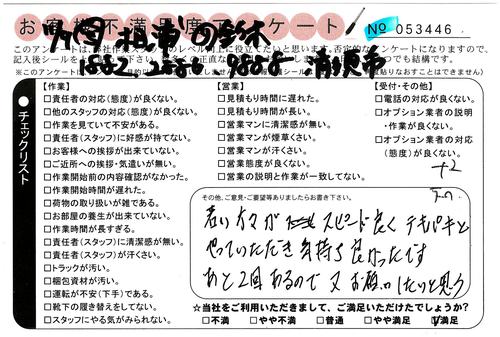 お客様不満足度アンケート
№ 053446
このアンケートは、弊社作業スタッフのレベル向上に役立てたいと思います。否定的なアンケートになりますので、
記入後シールを
つもり
構です。
【作業】
□責任者の対応(態度)が良くない。
□他のスタッフの対応(態度)が良くない。
□作業を見ていて不安がある。
□責任者(スタッフ)に好感が持てない。
□お客様への挨拶が出来ていない。
□ご近所への挨拶・気遣いが無い。
□作業開始前の内容確認がなかった。
□作業開始時間が遅れた。
□荷物の取り扱いが雑である。
□お部屋の養生が出来ていない。
□作業時間が長すぎる。
□責任者(スタッフ)に清潔感が無い。
□責任者(スタッフ)が汗くさい。
□トラックが汚い。
□梱包資材が汚い。
□運転が不安(下手)である。
□靴下の履き替えをしてない。
□スタッフにやる気がみられない。
【営業】
□見積もり時間に遅れた。
□見積もり時間が長い。
□営業マンに清潔感が無い。
□営業マンが煙草くさい。
□営業マンが汗くさい。
□営業態度が良くない。
□営業の説明と作業が一致してない。
【受付・その他】
□電話の対応が良くない。
□オプション業者の説明
・作業が良くない。
□オプション業者の対応
(態度)が良くない。
●チェックリスト
その他、ご意見・ご要望等ありましたらお書き下さい。
若い方々が スピード良く テキパキと
やっていただき 気持ち良かったです
あと2回あるので 又 お願いしたいと思う
☆当社をご利用いただきまして、ご満足いただけたでしょうか?
□不満 □やや不満 □普通 □やや満足 ☑満足